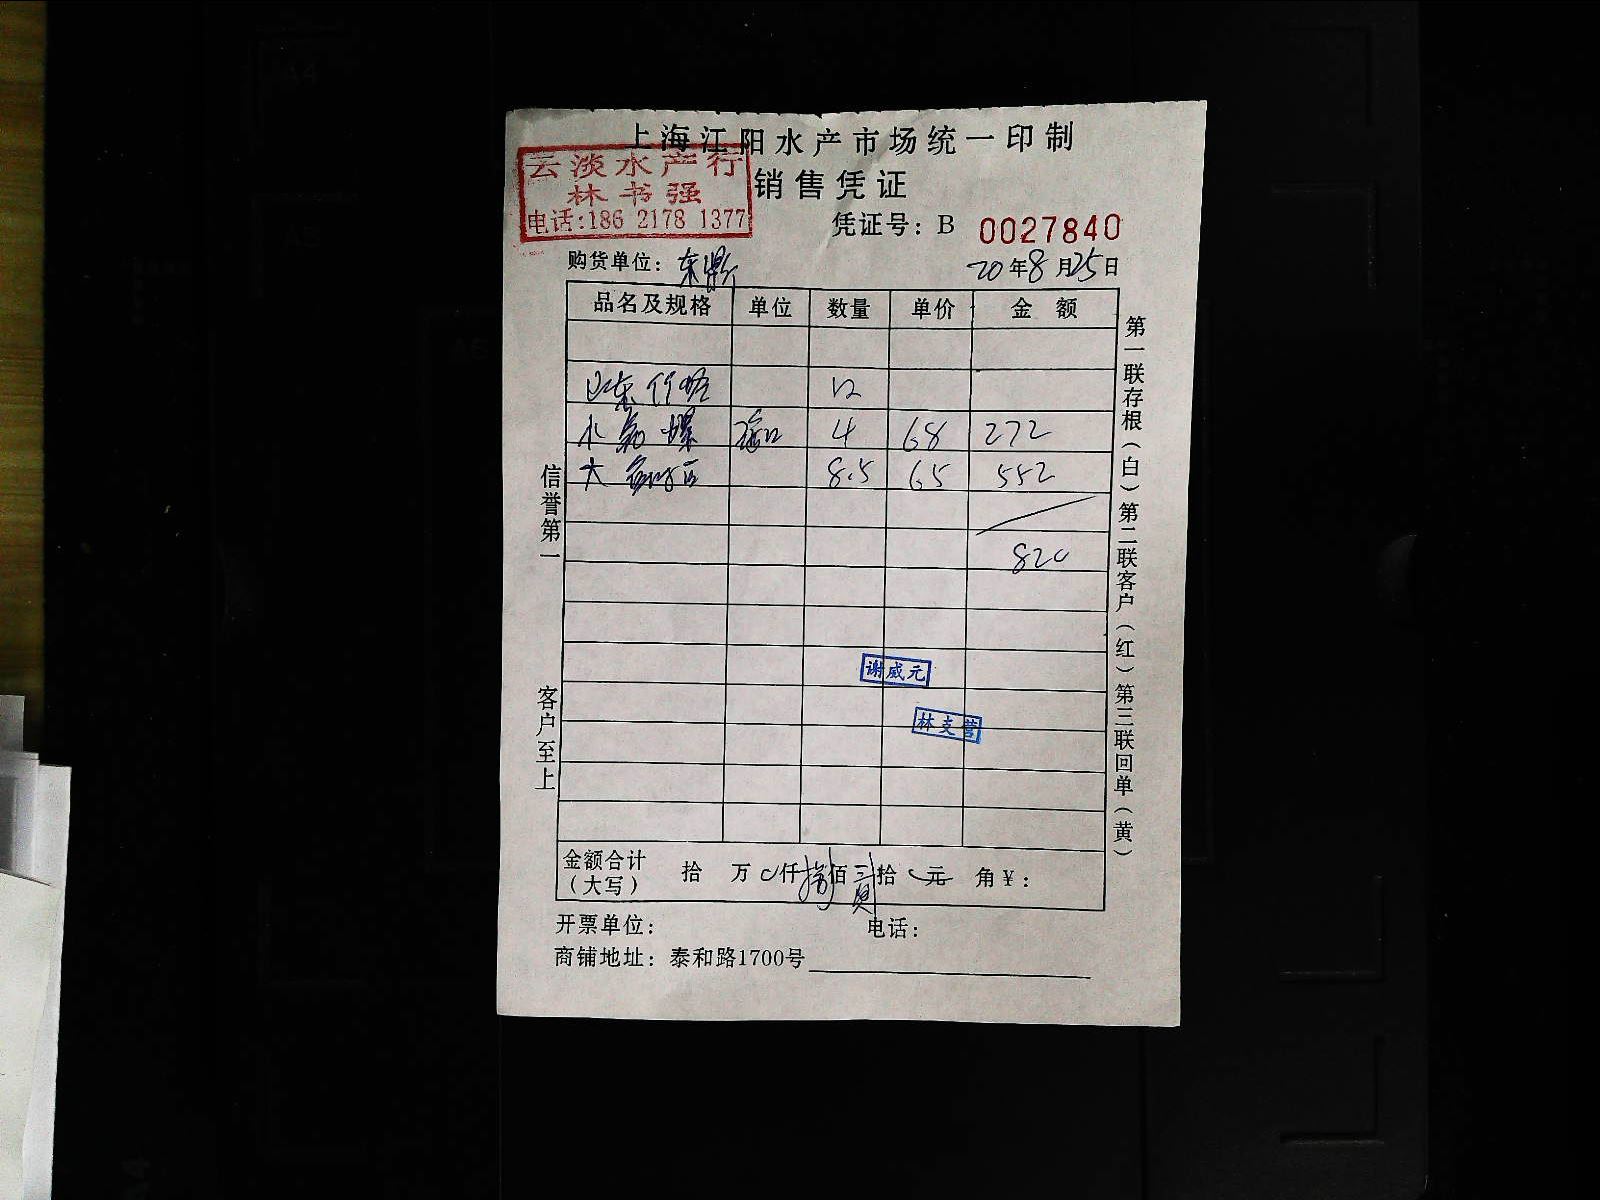 上海江阳水产市场统一印制
云淡水产行
林书强
电话:186 2178 1377
销售凭证
凭证号: B 0027840
购货单位: 东鼎
20年8月25日
品名及规格 单位 数量 单价 金额
12
水 螺 4 68 272
大 8.5 65 552
820
谢威元
林支营
信誉第一
客户至上
第一联存根(白)第二联客户(红)第三联回单(黄)
金额合计(大写) 拾 万 0仟捌佰贰拾0元 角¥:
开票单位: 电话:
商铺地址: 泰和路1700号